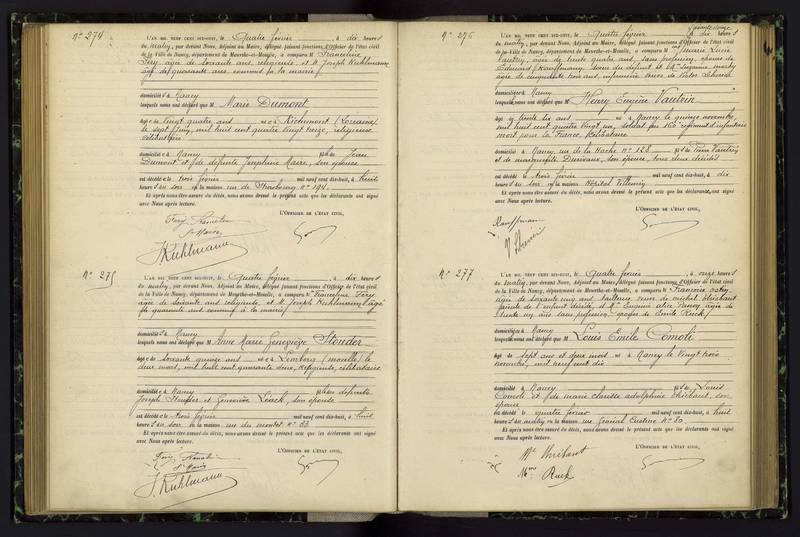 N° 274
L'AN MIL NEUF CENT DIX-HUIT, le Quatre février, à dix heures
du matin, par devant Nous, Adjoint au Maire, délégué faisant fonctions d'Officier de l'état civil
de la Ville de Nancy, département de Meurthe-et-Moselle, a comparu M Franceline
Fery, âgée de soixante ans, religieuse, et M. Joseph Kuhlmann
âgé de quarante ans, commis à la mairie,
domiciliés à Nancy
lesquels nous ont déclaré que M Marie Dumont
âgée de vingt quatre ans née à Richemont (Lorraine)
le sept mil huit cent quatre vingt treize, religieuse
célibataire
domiciliée à Nancy fille de Jean
Dumont et de défunte Joséphine Marie, son épouse
est décédée le trois février mil neuf cent dix-huit, à huit
heures du soir en la maison rue de Strasbourg n° 194.
Et après nous être assuré du décès, nous avons dressé le présent acte que les déclarants ont signé
avec Nous après lecture.
L'OFFICIER DE L'ÉTAT CIVIL,
Fery Franceline
Sr Marie
J. Kuhlmann
N° 275
L'AN MIL NEUF CENT DIX-HUIT, le Quatre février, à dix heures
du matin, par devant Nous, Adjoint au Maire, délégué faisant fonctions d'Officier de l'état civil
de la Ville de Nancy, département de Meurthe-et-Moselle, a comparu M Franceline Fery
âgée de soixante ans, religieuse, et M. Joseph Kuhlmann, âgé
de quarante ans commis à la mairie,
domiciliés à Nancy
lesquels nous ont déclaré que M Anne Marie Geneviève Stouder
âgée de soixante quinze ans née à (moselle) le
deux mars, mil huit cent quarante deux, religieuse, célibataire
domiciliée à Nancy fille de défunts
Joseph Stouder et Geneviève, son épouse
est décédée le trois février mil neuf cent dix-huit, à huit
heures du soir en la maison rue du montet n° 33
Et après nous être assuré du décès, nous avons dressé le présent acte que les déclarants ont signé
avec Nous après lecture.
L'OFFICIER DE L'ÉTAT CIVIL,
Fery
Sr Marie
J. Kuhlmann
N° 276
L'AN MIL NEUF CENT DIX-HUIT, le Quatre février, à dix heures
du matin, par devant Nous, Adjoint au Maire, délégué faisant fonctions d'Officier de l'état civil
de la Ville de Nancy, département de Meurthe-et-Moselle, a comparu M Marie
Vautrin, âgée de trente quatre ans, sans profession, épouse de
Edouard Kauffmann, soeur du défunt et Me Suzanne
âgée de cinquante trois ans, infirmière veuve de Victor
domiciliés à Nancy
lesquels nous ont déclaré que M Henry Eugène Vautrin
âgé de trente six ans né à Nancy le quinze novembre
mil huit cent quatre vingt un, soldat au 160e régiment d'infanterie
mort pour la France, célibataire
domicilié à Nancy, rue de la Hache n° 128 fils de Pierre Vautrin
et de marguerite, son épouse, tous deux décédés
est décédé le trois février mil neuf cent dix-huit, à dix
heures du soir en la maison Hôpital Villemin
Et après nous être assuré du décès, nous avons dressé le présent acte que les déclarants ont signé
avec Nous après lecture.
L'OFFICIER DE L'ÉTAT CIVIL,
Kauffmann
N° 277
L'AN MIL NEUF CENT DIX-HUIT, le Quatre février, à onze heures
du matin, par devant Nous, Adjoint au Maire, délégué faisant fonctions d'Officier de l'état civil
de la Ville de Nancy, département de Meurthe-et-Moselle, a comparu M Françoise
âgée de soixante cinq ans, veuve de michel
de l'enfant décédé, et Me Eugénie alice âgée de
trente ans, sans profession, épouse de Emile Ruck
domiciliées à Nancy
lesquels nous ont déclaré que M Louis Emile Comoli
âgé de sept ans et deux mois né à Nancy le vingt trois
novembre, mil neuf cent dix
domicilié à Nancy fils de Louis
Comoli et de marie clarisse adolphine, son
épouse
est décédé le quatre février mil neuf cent dix-huit, à huit
heures du matin en la maison rue Général Custine n° 50
Et après nous être assuré du décès, nous avons dressé le présent acte que les déclarants ont signé
avec Nous après lecture.
L'OFFICIER DE L'ÉTAT CIVIL,
Mme Ruck